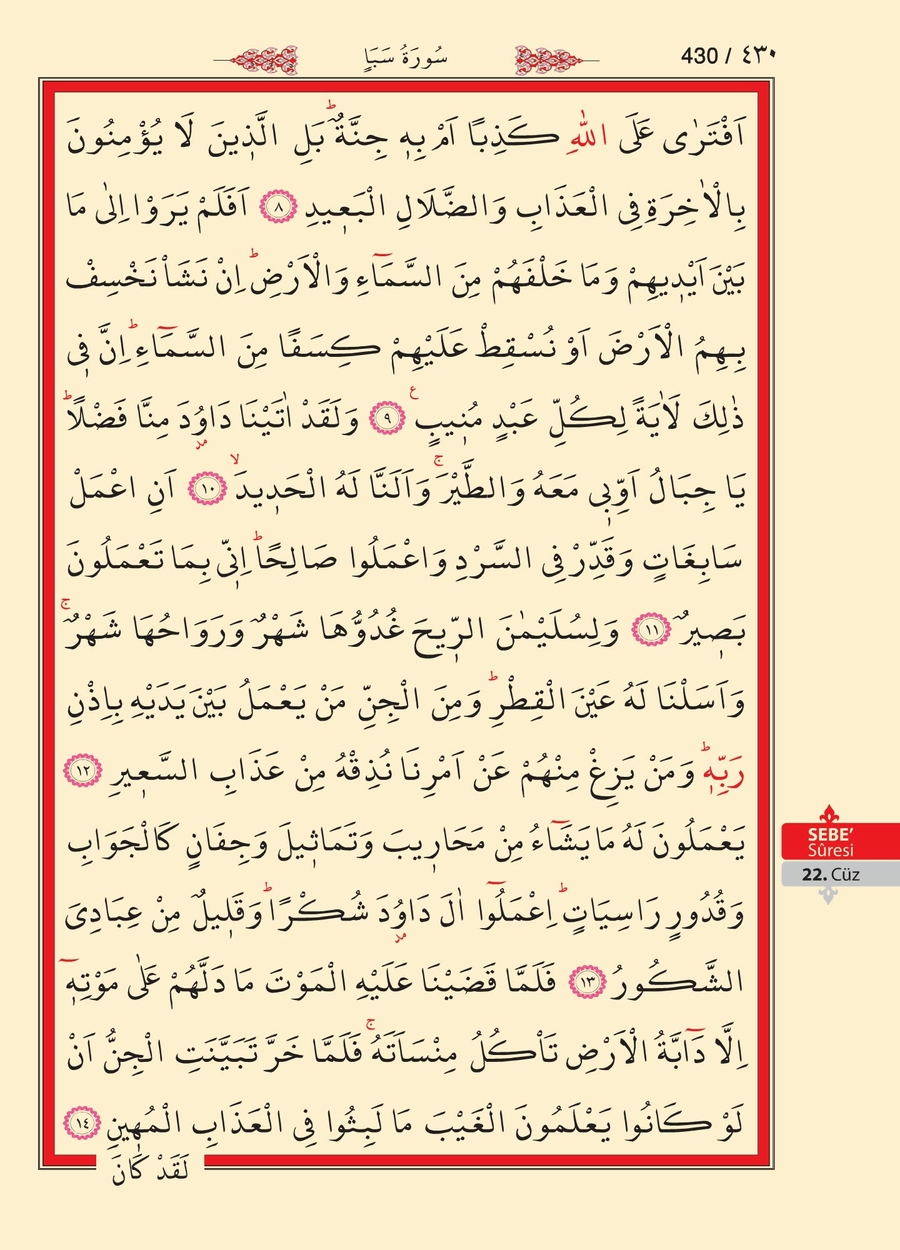 430 / ٤٣٠
سُورَةُ سَبَأٍ
اَفْتَرٰى عَلَى اللّٰهِ كَذِبًا اَمْ بِه۪ جِنَّةٌۜ بَلِ الَّذ۪ينَ لَا يُؤْمِنُونَ
بِالْاٰخِرَةِ فِي الْعَذَابِ وَالضَّلَالِ الْبَع۪يدِ ﴿٨﴾ اَفَلَمْ يَرَوْا اِلٰى مَا
بَيْنَ اَيْد۪يهِمْ وَمَا خَلْفَهُمْ مِنَ السَّمَٓاءِ وَالْاَرْضِۜ اِنْ نَشَأْ نَخْسِفْ
بِهِمُ الْاَرْضَ اَوْ نُسْقِطْ عَلَيْهِمْ كِسَفًا مِنَ السَّمَٓاءِۜ اِنَّ ف۪ي
ذٰلِكَ لَاٰيَةً لِكُلِّ عَبْدٍ مُن۪يبٍ۟ ﴿٩﴾ وَلَقَدْ اٰتَيْنَا دَاوُ۫دَ مِنَّا فَضْلًاۜ
يَا جِبَالُ اَوِّب۪ي مَعَهُ وَالطَّيْرَۚ وَاَلَنَّا لَهُ الْحَد۪يدَۙ ﴿١٠﴾ اَنِ اعْمَلْ
سَابِغَاتٍ وَقَدِّرْ فِي السَّرْدِ وَاعْمَلُوا صَالِحًاۜ اِنّ۪ي بِمَا تَعْمَلُونَ
بَص۪يرٌ ﴿١١﴾ وَلِسُلَيْمٰنَ الرّ۪يحَ غُدُوُّهَا شَهْرٌ وَرَوَاحُهَا شَهْرٌۚ
وَاَسَلْنَا لَهُ عَيْنَ الْقِطْرِۜ وَمِنَ الْجِنِّ مَنْ يَعْمَلُ بَيْنَ يَدَيْهِ بِاِذْنِ
رَبِّه۪ۜ وَمَنْ يَزِغْ مِنْهُمْ عَنْ اَمْرِنَا نُذِقْهُ مِنْ عَذَابِ السَّع۪يرِ ﴿١٢﴾
يَعْمَلُونَ لَهُ مَا يَشَٓاءُ مِنْ مَحَار۪يبَ وَتَمَاث۪يلَ وَجِفَانٍ كَالْجَوَابِ
وَقُدُورٍ رَاسِيَاتٍۜ اِعْمَلُٓوا اٰلَ دَاوُ۫دَ شُكْرًاۜ وَقَل۪يلٌ مِنْ عِبَادِيَ
الشَّكُورُ ﴿١٣﴾ فَلَمَّا قَضَيْنَا عَلَيْهِ الْمَوْتَ مَا دَلَّهُمْ عَلٰى مَوْتِه۪ٓ
اِلَّا دَٓابَّةُ الْاَرْضِ تَأْكُلُ مِنْسَاَتَهُۚ فَلَمَّا خَرَّ تَبَيَّنَتِ الْجِنُّ اَنْ
لَوْ كَانُوا يَعْلَمُونَ الْغَيْبَ مَا لَبِثُوا فِي الْعَذَابِ الْمُه۪ينِ ﴿١٤﴾
لَقَدْ كَانَ
SEBE’
Sûresi
22. Cüz